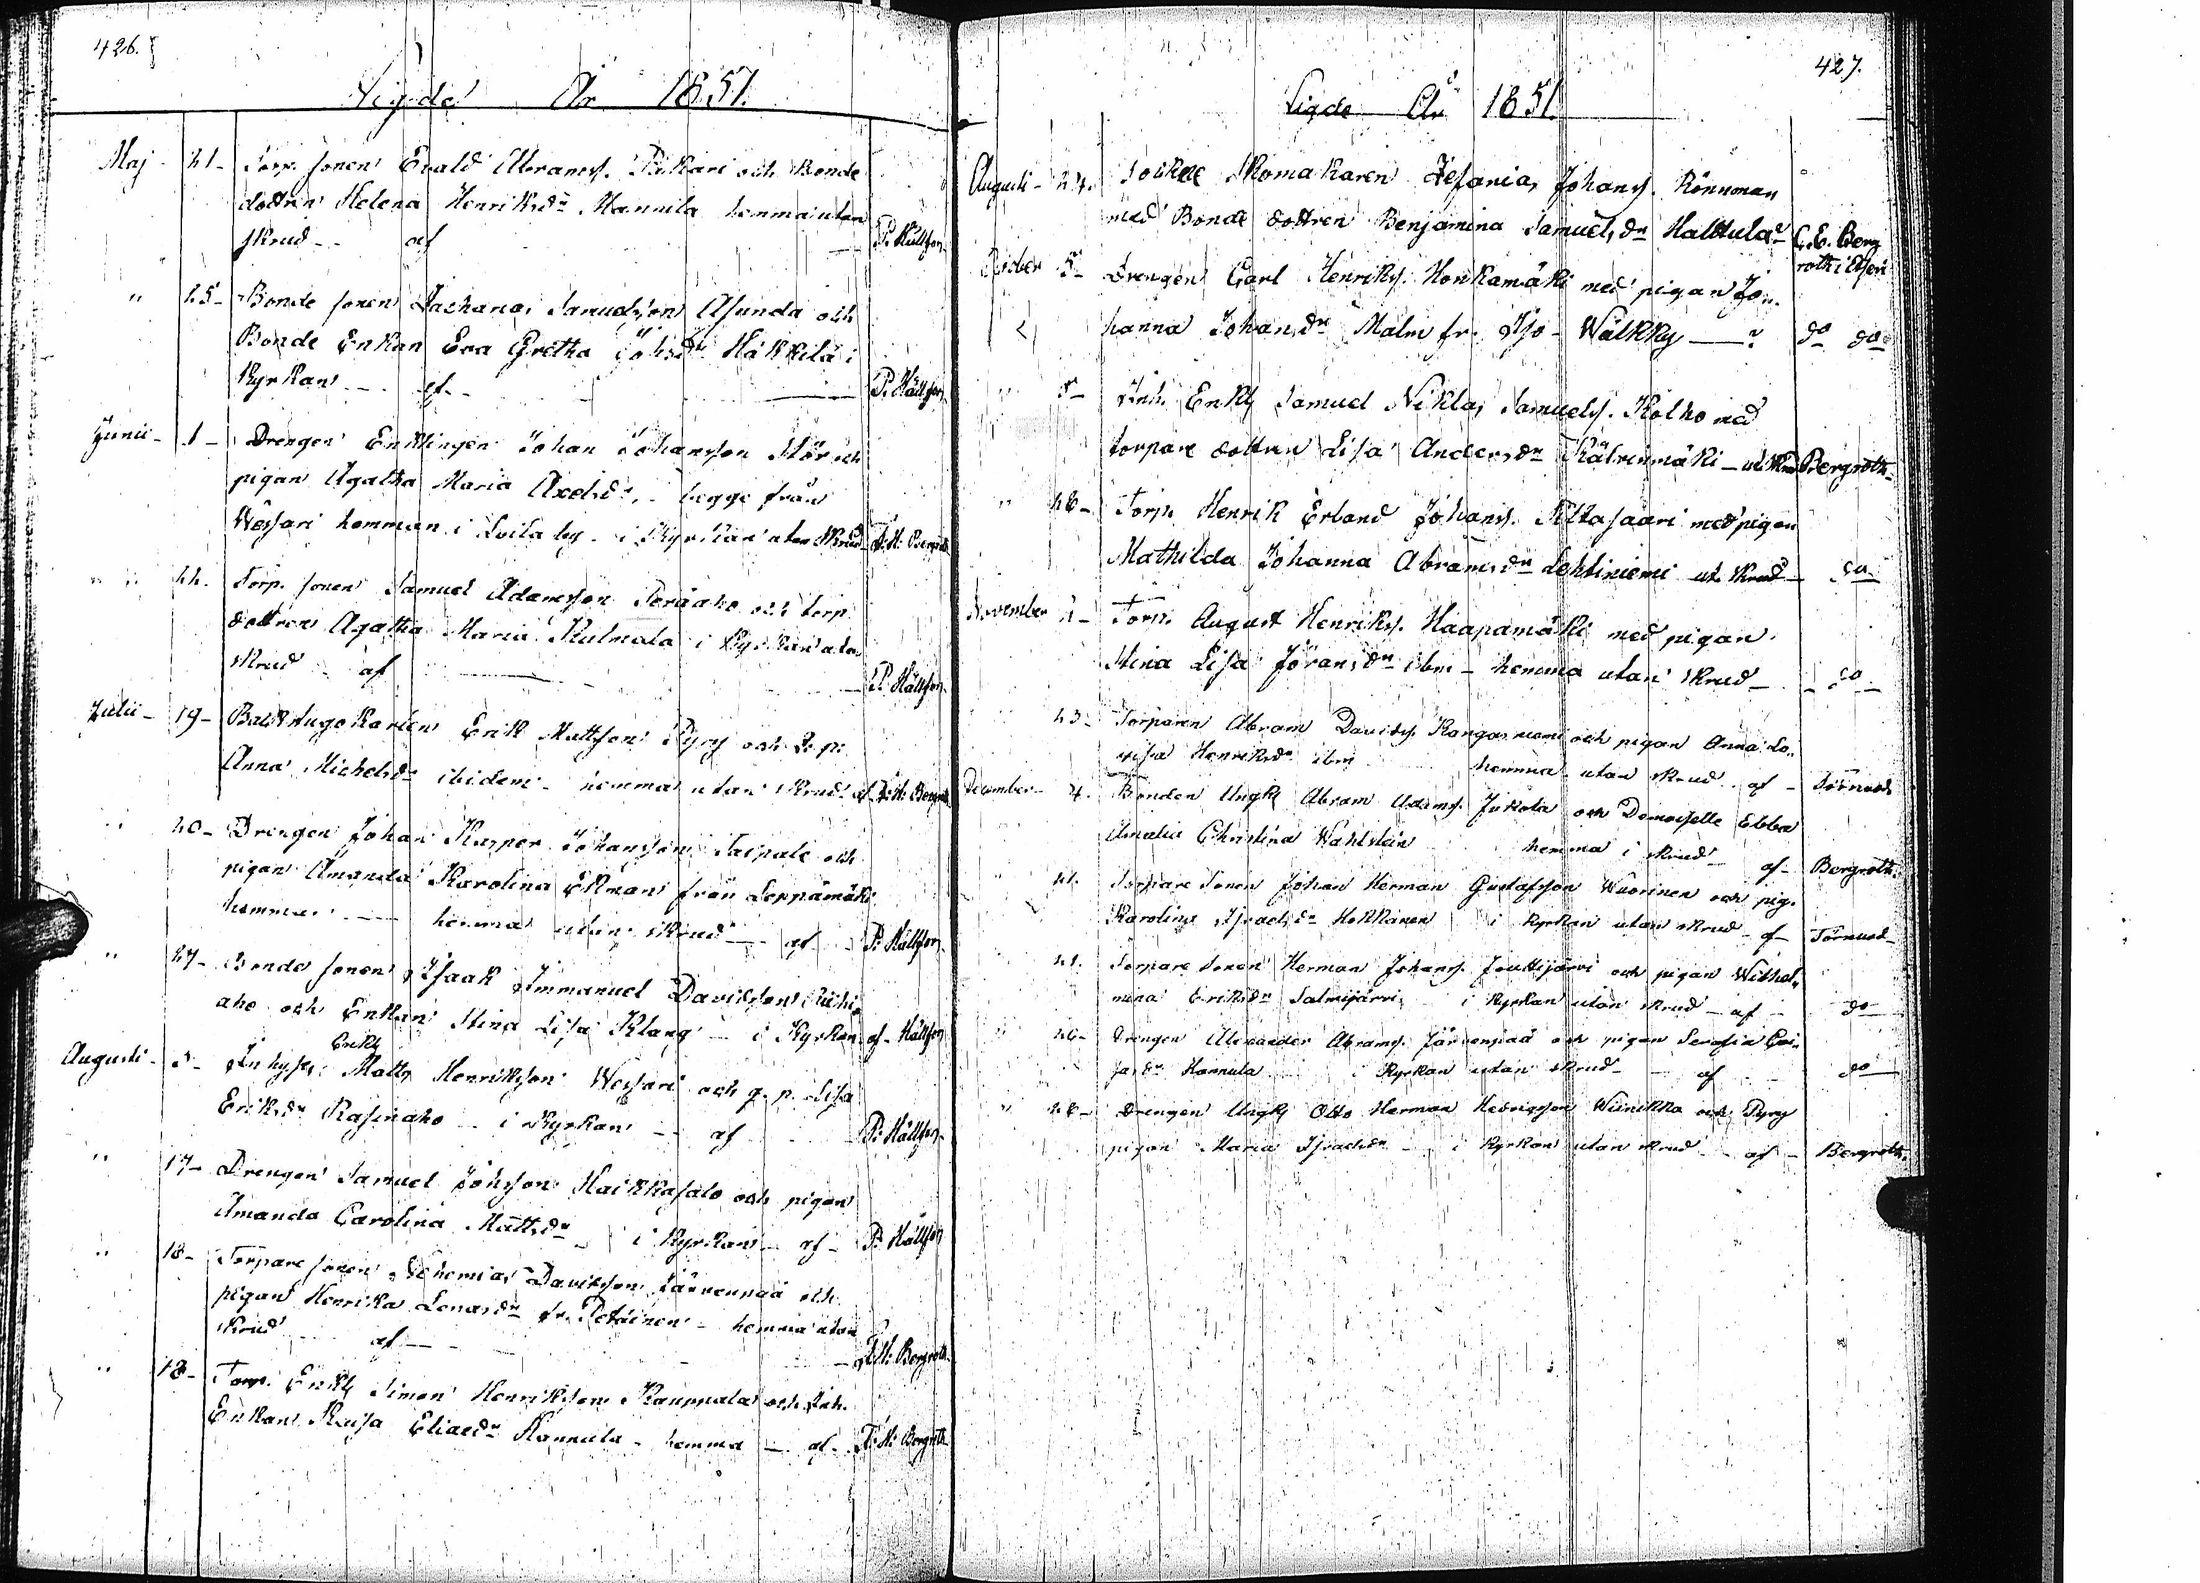 426.
Vigde År 1851.
Maj - 21 - Torp. sonen Evald Abramss. Pukari och Bonde
dottren Helena Henriksdr Mannila hemma utan
skrud - - af - P. Hällfors
" 25 - Bonde sonen Zacharias Samuelsson Asunda och
Bonde Enkan Eva Gretha Johsdr Häkkilä i
Kyrkan - - af - P. Hällfors
Junii - 1 - Drengen Enklingen Johan Johansson Stör och
pigan Agatha Maria Axelsdr, begge från
Wessari hemman i Loila by - i Kyrkan utan skrud - F. H. Bergroth
" " 22. Torp. sonen Samuel Adamsson Peräaho och torp.
dottren Agatha Maria Kulmala i Kyrkan utan
skrud af - P. Hällfors
Julii - 19 - Backstugokarlen Erik Mattsson Pyry och
Anna Michelsdr ibidem - hemma utan skrud af F. H. Bergroth
" 20 - Drengen Johan Kasper Johansson Taipale och
pigan Amanda Karolina Ekman från Leppämäki
hemman - hemma utan skrud - af - P. Hällfors
" 27 - Bonde sonen Isaak Immanuel Davidsson
aho och Enkan Stina Lisa Klang - i Kyrkan af - Hällfors
Enkl
Augusti - 3 - Inhyses Matts Henriksson Wessari och q. p. Lisa
Eriksdr Rasinaho - i Kyrkan - af P. Hällfors
" 17 - Drengen Samuel Johsson Haikkasalo och pigan
Amanda Carolina Mattsdr - i Kyrkan - af - P. Hällfors
" 18 - Torpare sonen Nehemias Davidsson Järvenpää och
pigan Henrika Lenasdr fr. Petäinen - hemma utan
skrud af - F. H. Bergroth
" 18 - Torp. Enkl Simon Henriksson Kaupnala och Inh.
Enkan Kaisa Eliaedr Hannula - hemma - af - F. H. Bergroth
427.
Vigde År 1851.
Augusti - 24. Sockne Skomakaren Zefanias Johanss. Rönnman
med Bonde dottren Benjamina Samuelsdr Halttula C. E. Berg
roth i Etseri
October 5 - Drengen Carl Henrikss. Honkamäki med pigan Jo-
hanna Johansdr Malm fr. Iso - Wälkky - do do
" 5 - Inh. Enkl Samuel Niklas Samuelss. Kolho med
torpare dottren Lisa Andersdr Kälvinmäki - ut. skrud Bergroth
" 26 - Torp. Henrik Erland Johanss. Pittasaari med pigan
Mathilda Johanna Abramsdr Lehtiniemi ut. skrud - do
November 2 - Torp. August Henrikss. Haapamäki med pigan
Stina Lisa Göransdr ibm - hemma utan skrud - do -
23 - Torparen Abram Davidss. Kangasniemi och pigan Anna Lo-
visa Henriksdr ibm hemma utan skrud - af - Törnudd
December - 4. Bonden Ungk Abram Adamss. Jukola och Demoiselle Ebba
Amalia Christina Wahlstein hemma i skrud - af - Bergroth
" 21. Torpare sonen Johan Herman Gustafsson Wuorinen och pig.
Karolina Isracksdr Hokkanen i Kyrkan utan skrud - af - Törnudd
21. Torpare sonen Herman Johanss. Jouttijärvi och pigan Wilhel-
mina Eriksdr Salmijärvi i Kyrkan utan skrud - af - do
" 26 - Drengen Alexander Abramss. Järvenpää och pigan Serafia
Hannula i Kyrkan utan skrud - af - do
" 28 - Drengen Ungk Otto Herman Henriksson Wiinikka och Pyry
pigan Maria Isracksdr - i Kyrkan utan skrud - af - Bergroth